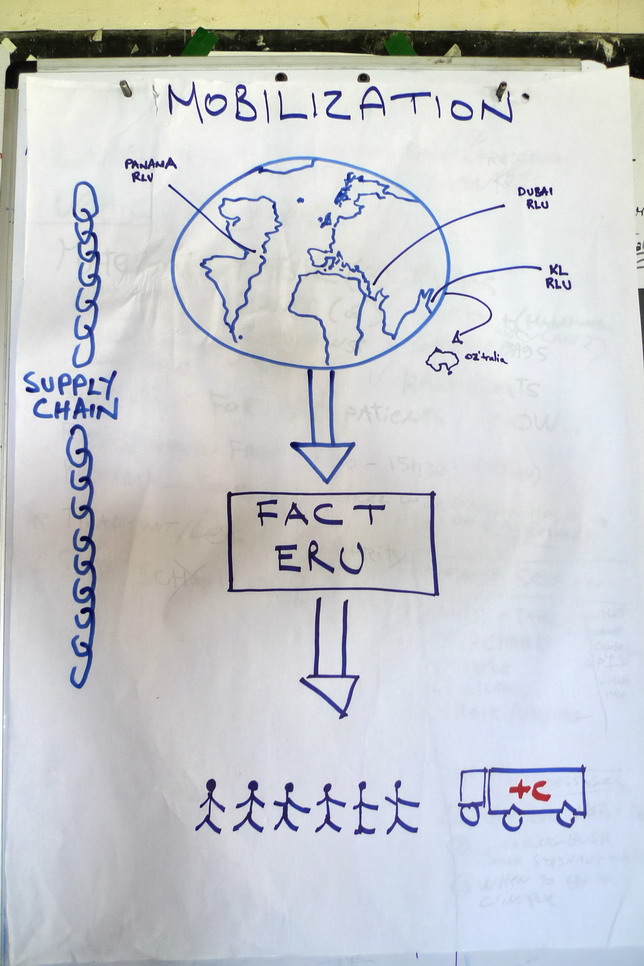 MOBILIZATION
PANAMA
RLU
DUBAI
RLU
KL
RLU
OZ'tralia
SUPPLY
CHAIN
FACT
ERU
+C